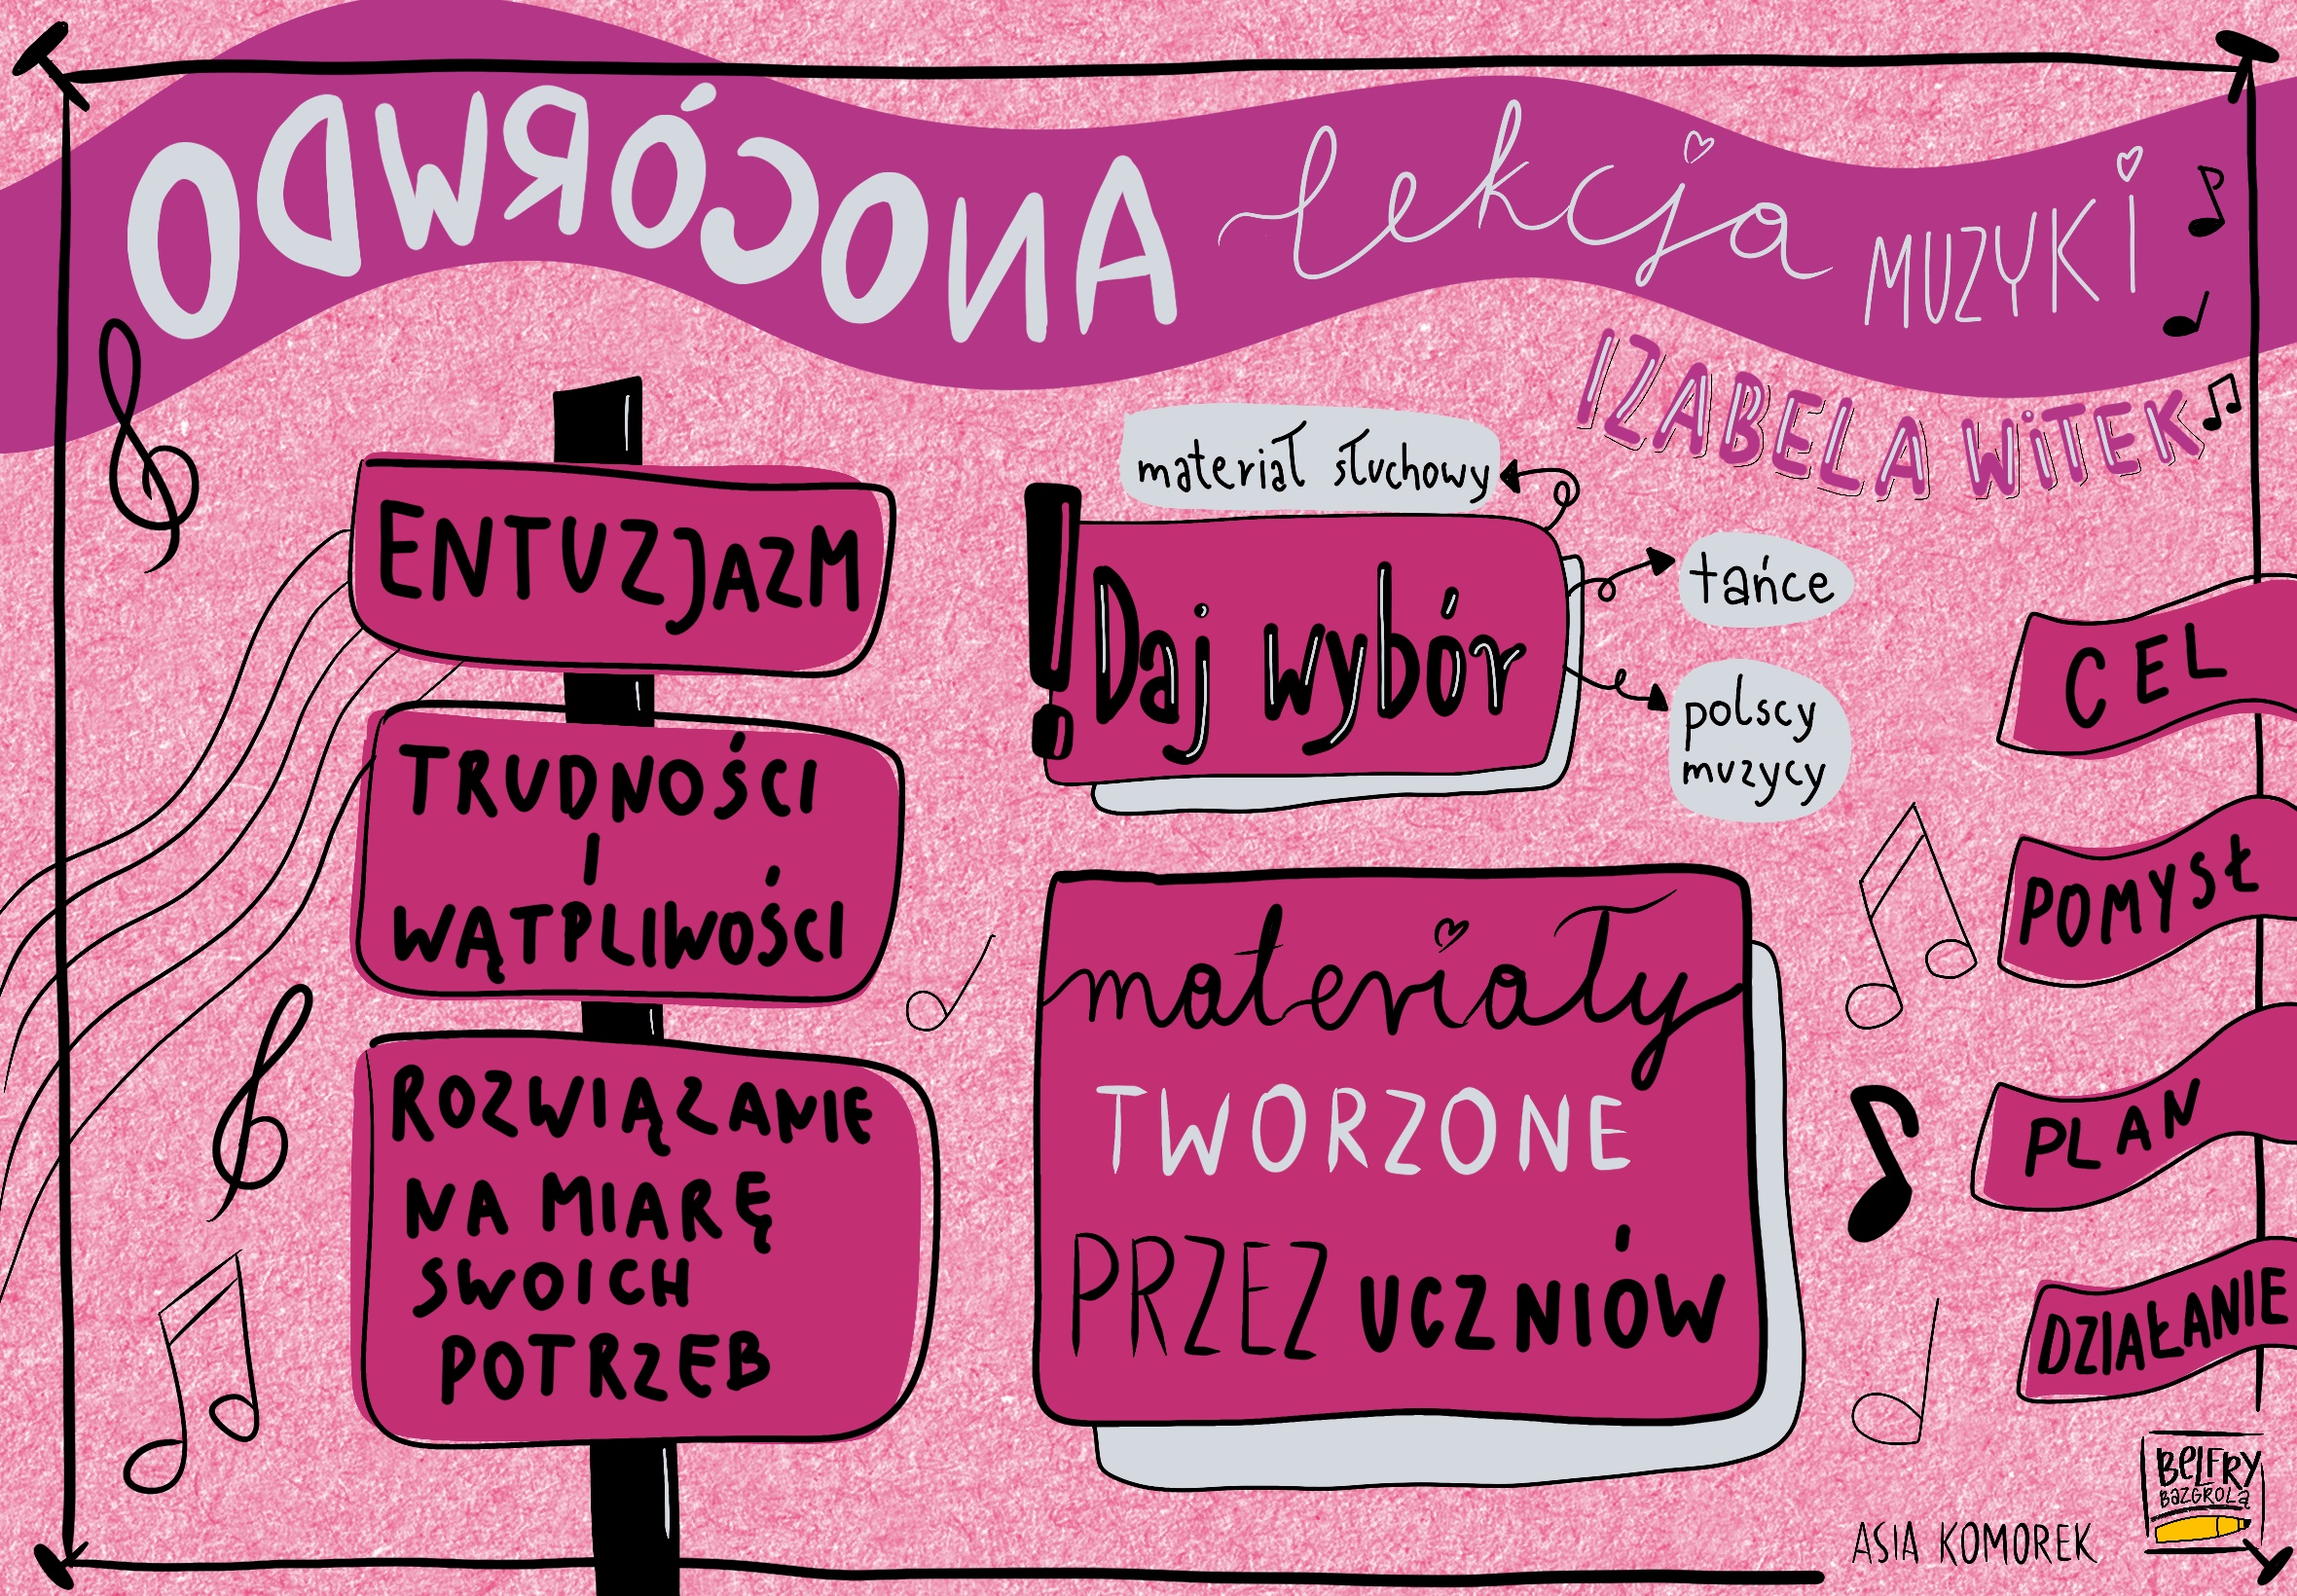 ODWRÓCONA lekcja MUZYKI
IZABELA WiTEK
ENTUZJAZM
TRUDNOŚCI
I
WĄTPLIWOŚCI
ROZWIĄZANIE
NA MIARĘ
SWOICH
POTRZEB
materiał słuchowy
! Daj wybór
tańce
polscy
muzycy
materiały
TWORZONE
PRZEZ UCZNIÓW
CEL
POMYSŁ
PLAN
DZIAŁANIE
BELFRY
BAZGROLĄ
ASIA KOMOREK